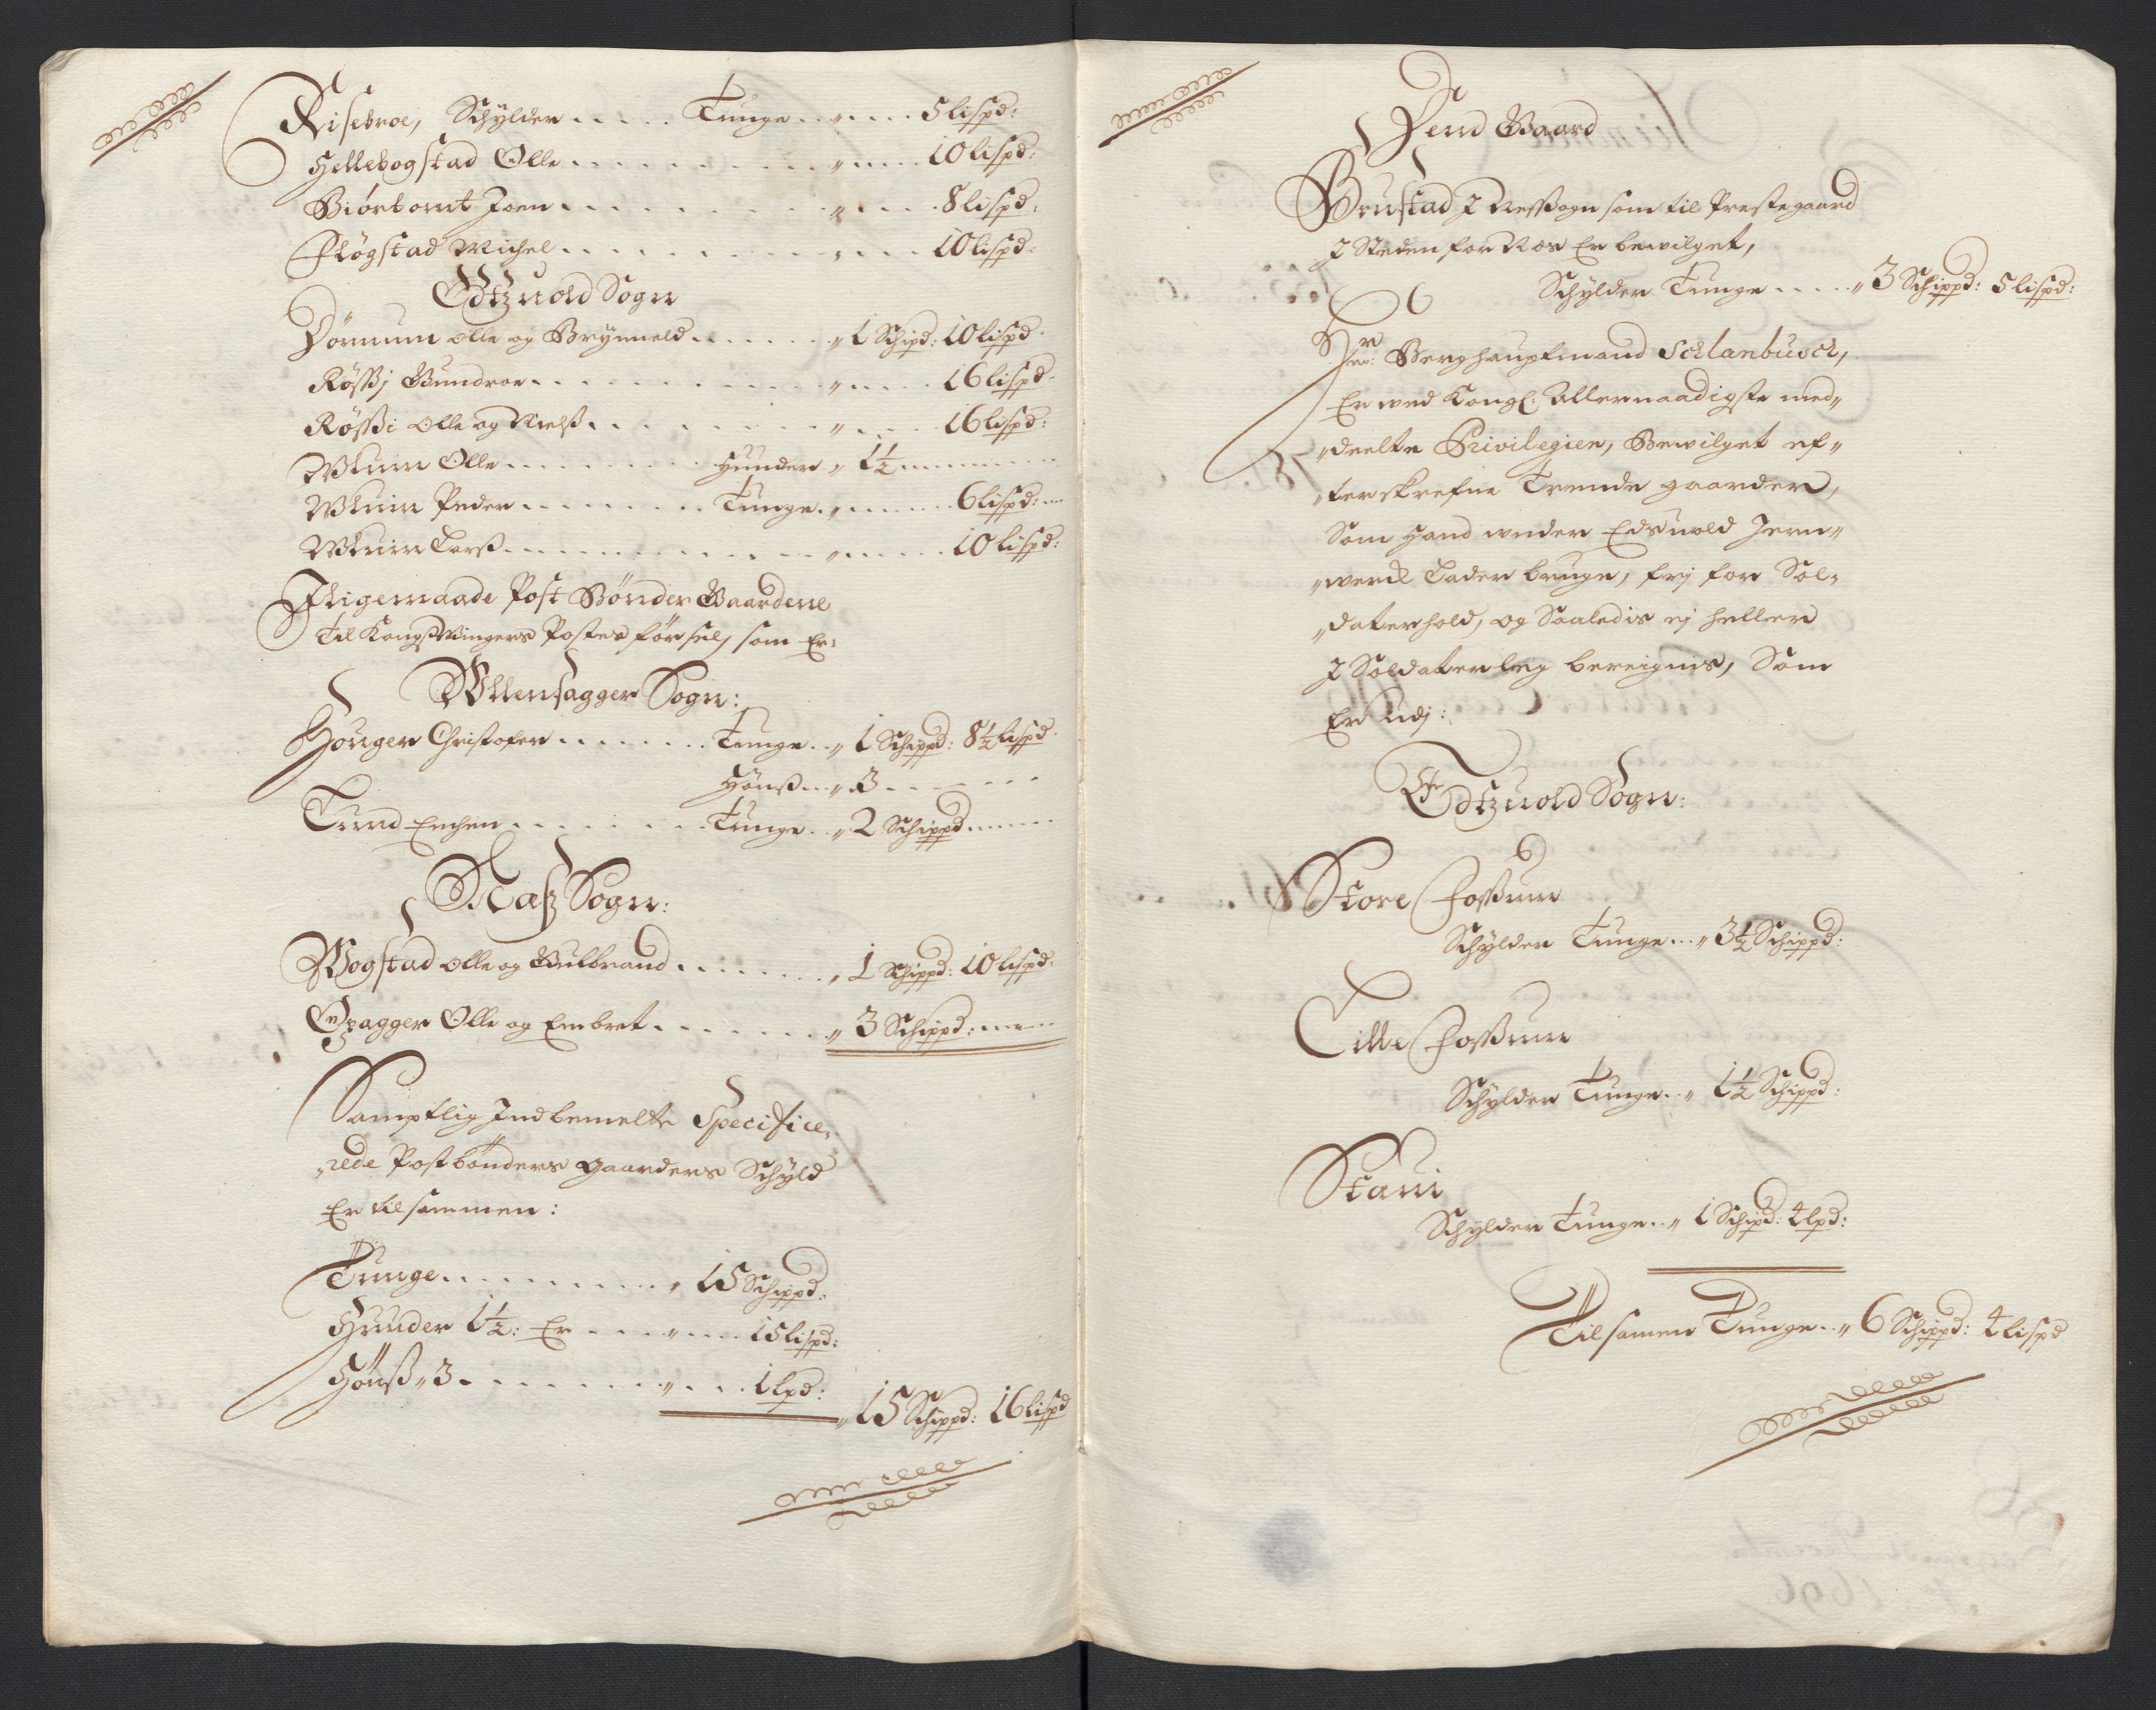 Risebroe, Schylder ..... Tunge .. „ .... 5 lispd:
Hellebogstad Olle .......... „ .... 10 lispd:
Biörtomt Joen .......... „ .... 8 lispd:
Fløgstad Michel .......... „ .... 10 lispd:
Edtzuold Sogn
Dørnum olle og Brynneld ...... „ 1 Schipd: 10 lispd:
Røssj Gundroe .......... „ .... 16 lispd:
Røssi Olle og Nielß .......... „ .... 16 lispd:
Wkuin Olle ........ Hunder „ 1½
Wkuin Peder ........ Tunge „ .... 6 lispd:
Wkuin Larß .......... „ .... 10 lispd:
Jligemaade Post Bønder Gaardene
til KongßWingers Postes førsel, som Er:
Wllensagger Sogn:
Houger Christofer ....... Tunge .. „ 1 Schippd: 8½ lispd:
Hønß .. „ 3
Lund Erchen ....... Tunge .. „ 2 Schippd
Næß Sogn:
Wogstad olle og Gulbrand ....... „ 1 Schippd: 10 lispd:
Opagger Olle og Embret ....... „ 3 Schippd:
Samptlig Indbemelte Specifice„
„rede Postbønders gaarders Schyld
Er tilsammen:
Tunge .......... „ 15 Schippd:
Hunder 1½: Er .... „ .... 15 lispd:
Hønß „ 3 ........ „ ... 1 lpd:
„ 15 Schippd: 16 lispd
Dend Gaard
Brustad J Nessogn som til Prestegaard
J Steden for Næs Er bewilget,
Schylder Tunge ..... „ 3 Schippd: 5 lispd:
Her: Berghauptmand Schlanbusch,
Er wed Kongl: Allernaadigste med„
„deelte Privilegier, Bewilget ef„
„terskrefne Trende gaarder,
Som hand under Edsuold Jern„
„werck Lader bruge, frj for Sol„
„daterhold, og Saaledis ej heller
J Soldaterleg bereignis, Som
Er udj:
Edtzuold Sogn:
Store Fossum
Schylder Tunge ... „ 3½ Schippd:
Lille Fossum
Schylder Tunge .. „ 1½ Schippd:
Staui
Schylder Tunge .. „ 1 Schipd: 4 lpd:
Tilsamen Tunge .. „ 6 Schippd: 4 lispd